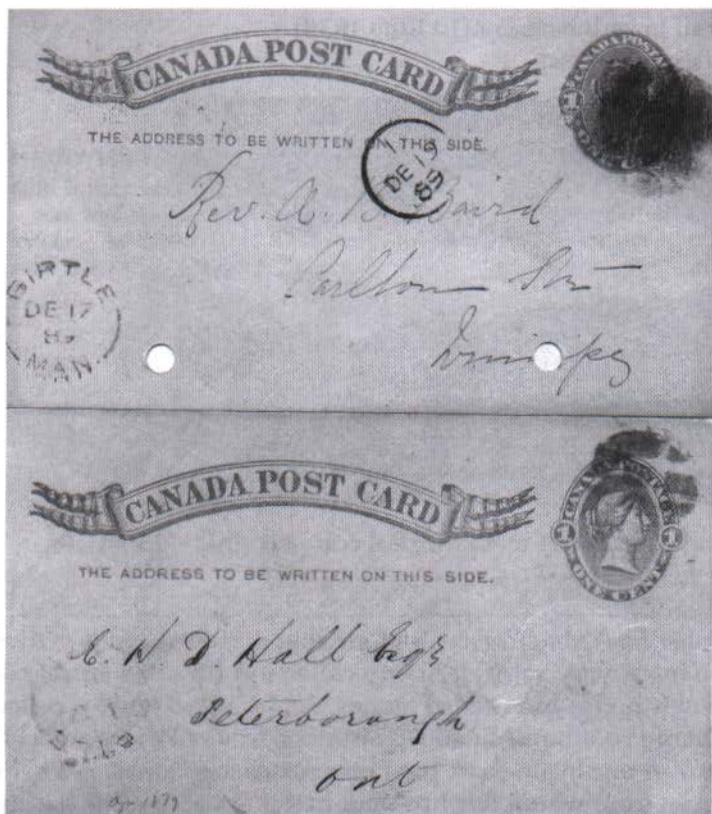 CANADA POST CARD
CANADA POSTA
1
THE ADDRESS TO BE WRITTEN ON THIS SIDE.
DE 19
89
Rev. A. B. Baird
Carlton St
Winnipeg
BIRTLE
DE 17
89
MAN.
CANADA POST CARD
CANADA POSTAGE
1 1
ONE CENT
THE ADDRESS TO BE WRITTEN ON THIS SIDE.
E. H. D. Hall Esqr
Peterborough
Ont
Apr 1879